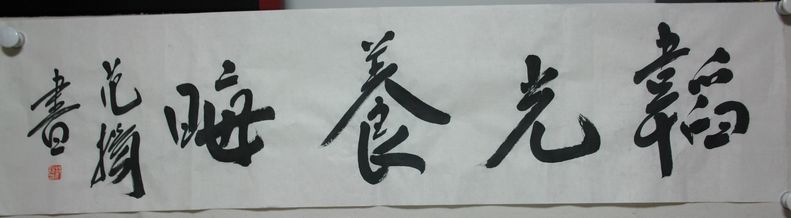 韜光養晦
范
書